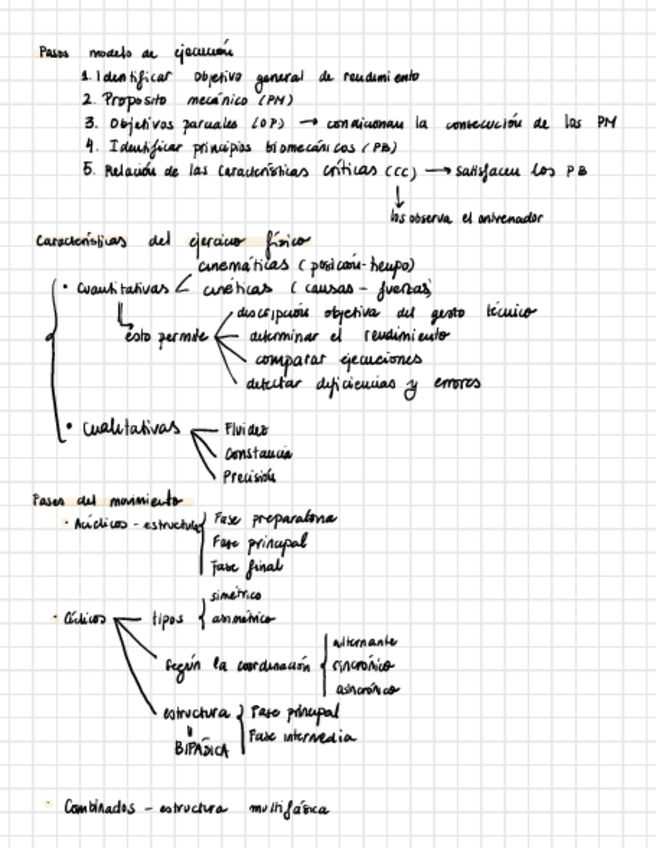 Pasos modelo de ejecución
1. Identificar objetivo general de rendimiento
2. Proposito mecánico (PM)
3. Objetivos parciales (OP) → condicionan la consecución de los PM
4. Identificar principios biomecánicos (PB)
5. Relación de las características críticas (CC) → satisfacen los PB
los observa el entrenador
Características del ejercicio físico
cinemáticas (posición-tiempo)
• Cuantitativas < cinéticas (causas - fuerzas)
descripción objetiva del gesto técnico
esto permite determinar el rendimiento
comparar ejecuciones
detectar deficiencias y errores
• Cualitativas Fluidez
Constancia
Precisión
Fases del movimiento
• Acíclicos - estructura { Fase preparatoria
Fase principal
Fase final
simétrico
• Cíclicos tipos { asimétrico
alternante
según la coordinación { sincrónico
asincrónico
estructura { Fase principal
Fase intermedia
BIFÁSICA
• Combinados - estructura multifásica